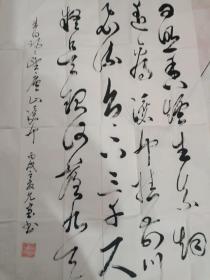 日照香爐生紫烟
遥看瀑布挂前川
飛流直下三千尺
疑是銀河落九天
李白詩望廬山瀑布 丙戌 夏 書